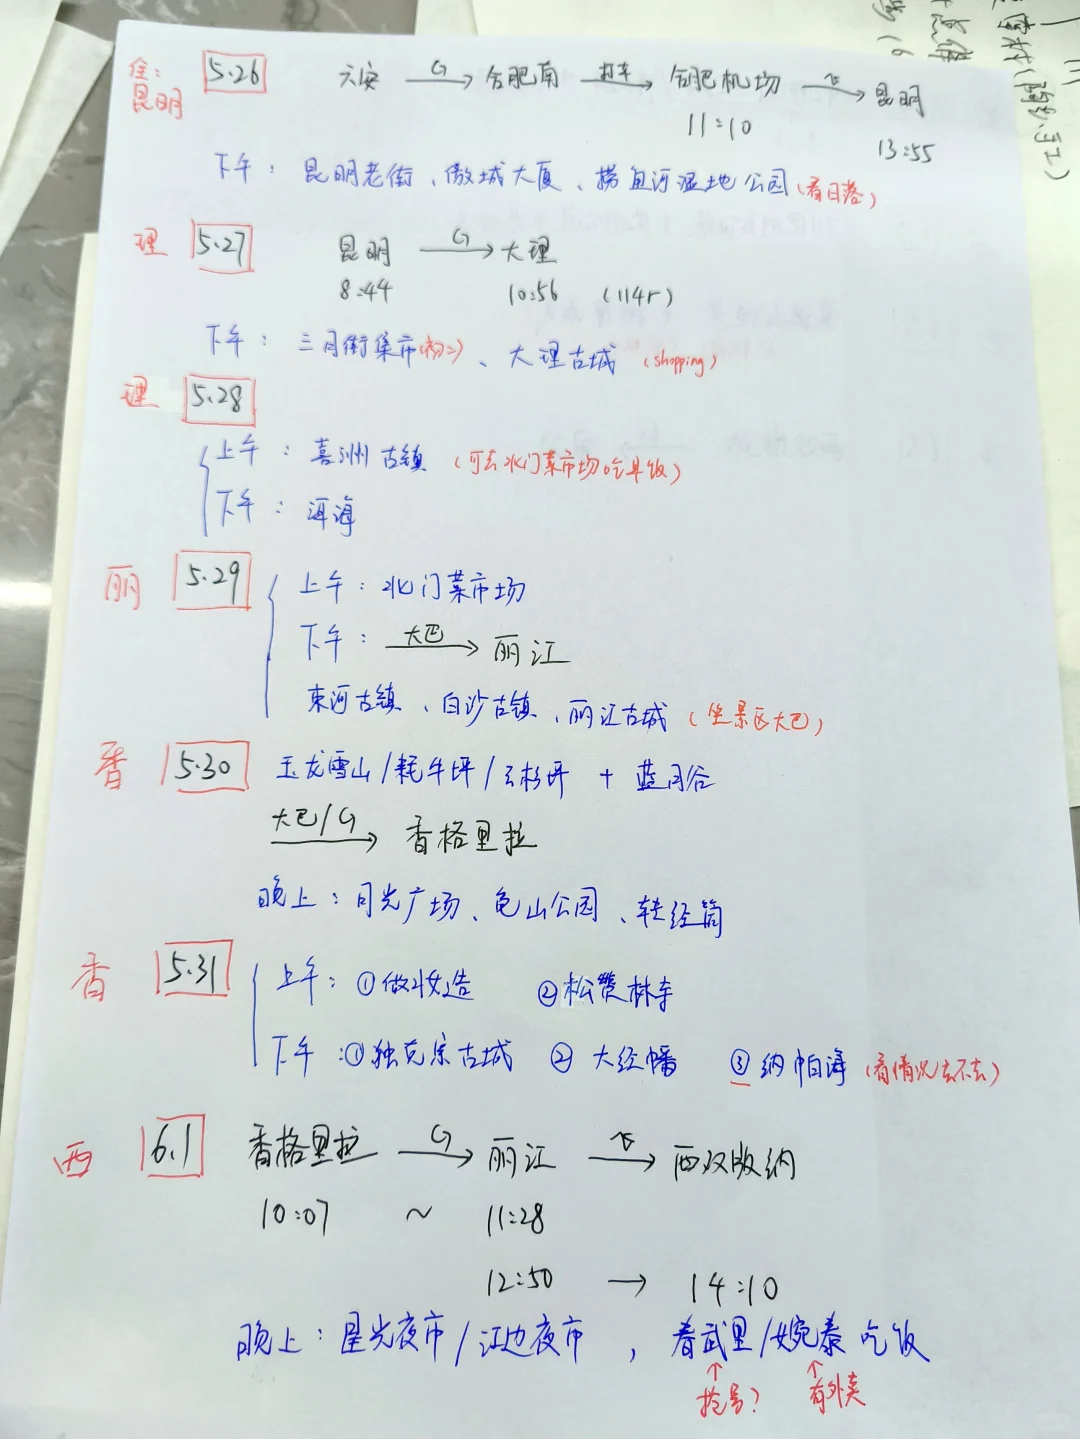 住: 5.26 六安 G→ 合肥南 打车→ 合肥机场 飞→ 昆明
昆明
11:10
13:55
下午: 昆明老街、傲城大厦、捞鱼河湿地公园(看日落)
理 5.27 昆明 G→ 大理
8:44 10:56 (114r)
下午: 三月街集市(初二)、大理古城(shopping)
理 5.28
上午: 喜洲古镇 (可去北门菜市场吃早饭)
下午: 洱海
丽 5.29 上午: 北门菜市场
下午: 大巴→ 丽江
束河古镇、白沙古镇、丽江古城 (坐景区大巴)
香 5.30 玉龙雪山/耗牛坪/云杉坪 + 蓝月谷
大巴/G→ 香格里拉
晚上: 月光广场、龟山公园、转经筒
香 5.31 上午: ①做妆造 ②松赞林寺
下午: ①独克宗古城 ② 大经幡 ③纳帕海 (看情况去不去)
西 6.1 香格里拉 G→ 丽江 飞→ 西双版纳
10:07 ~ 11:28
12:50 → 14:10
晚上: 星光夜市/江边夜市, 春武里/婉泰吃饭
↑ ↑
抢号? 有外卖